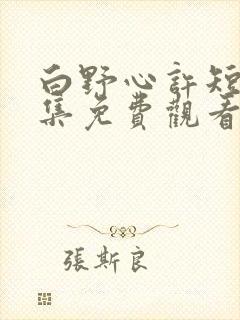 白野心許短
集免費觀看
張斯良